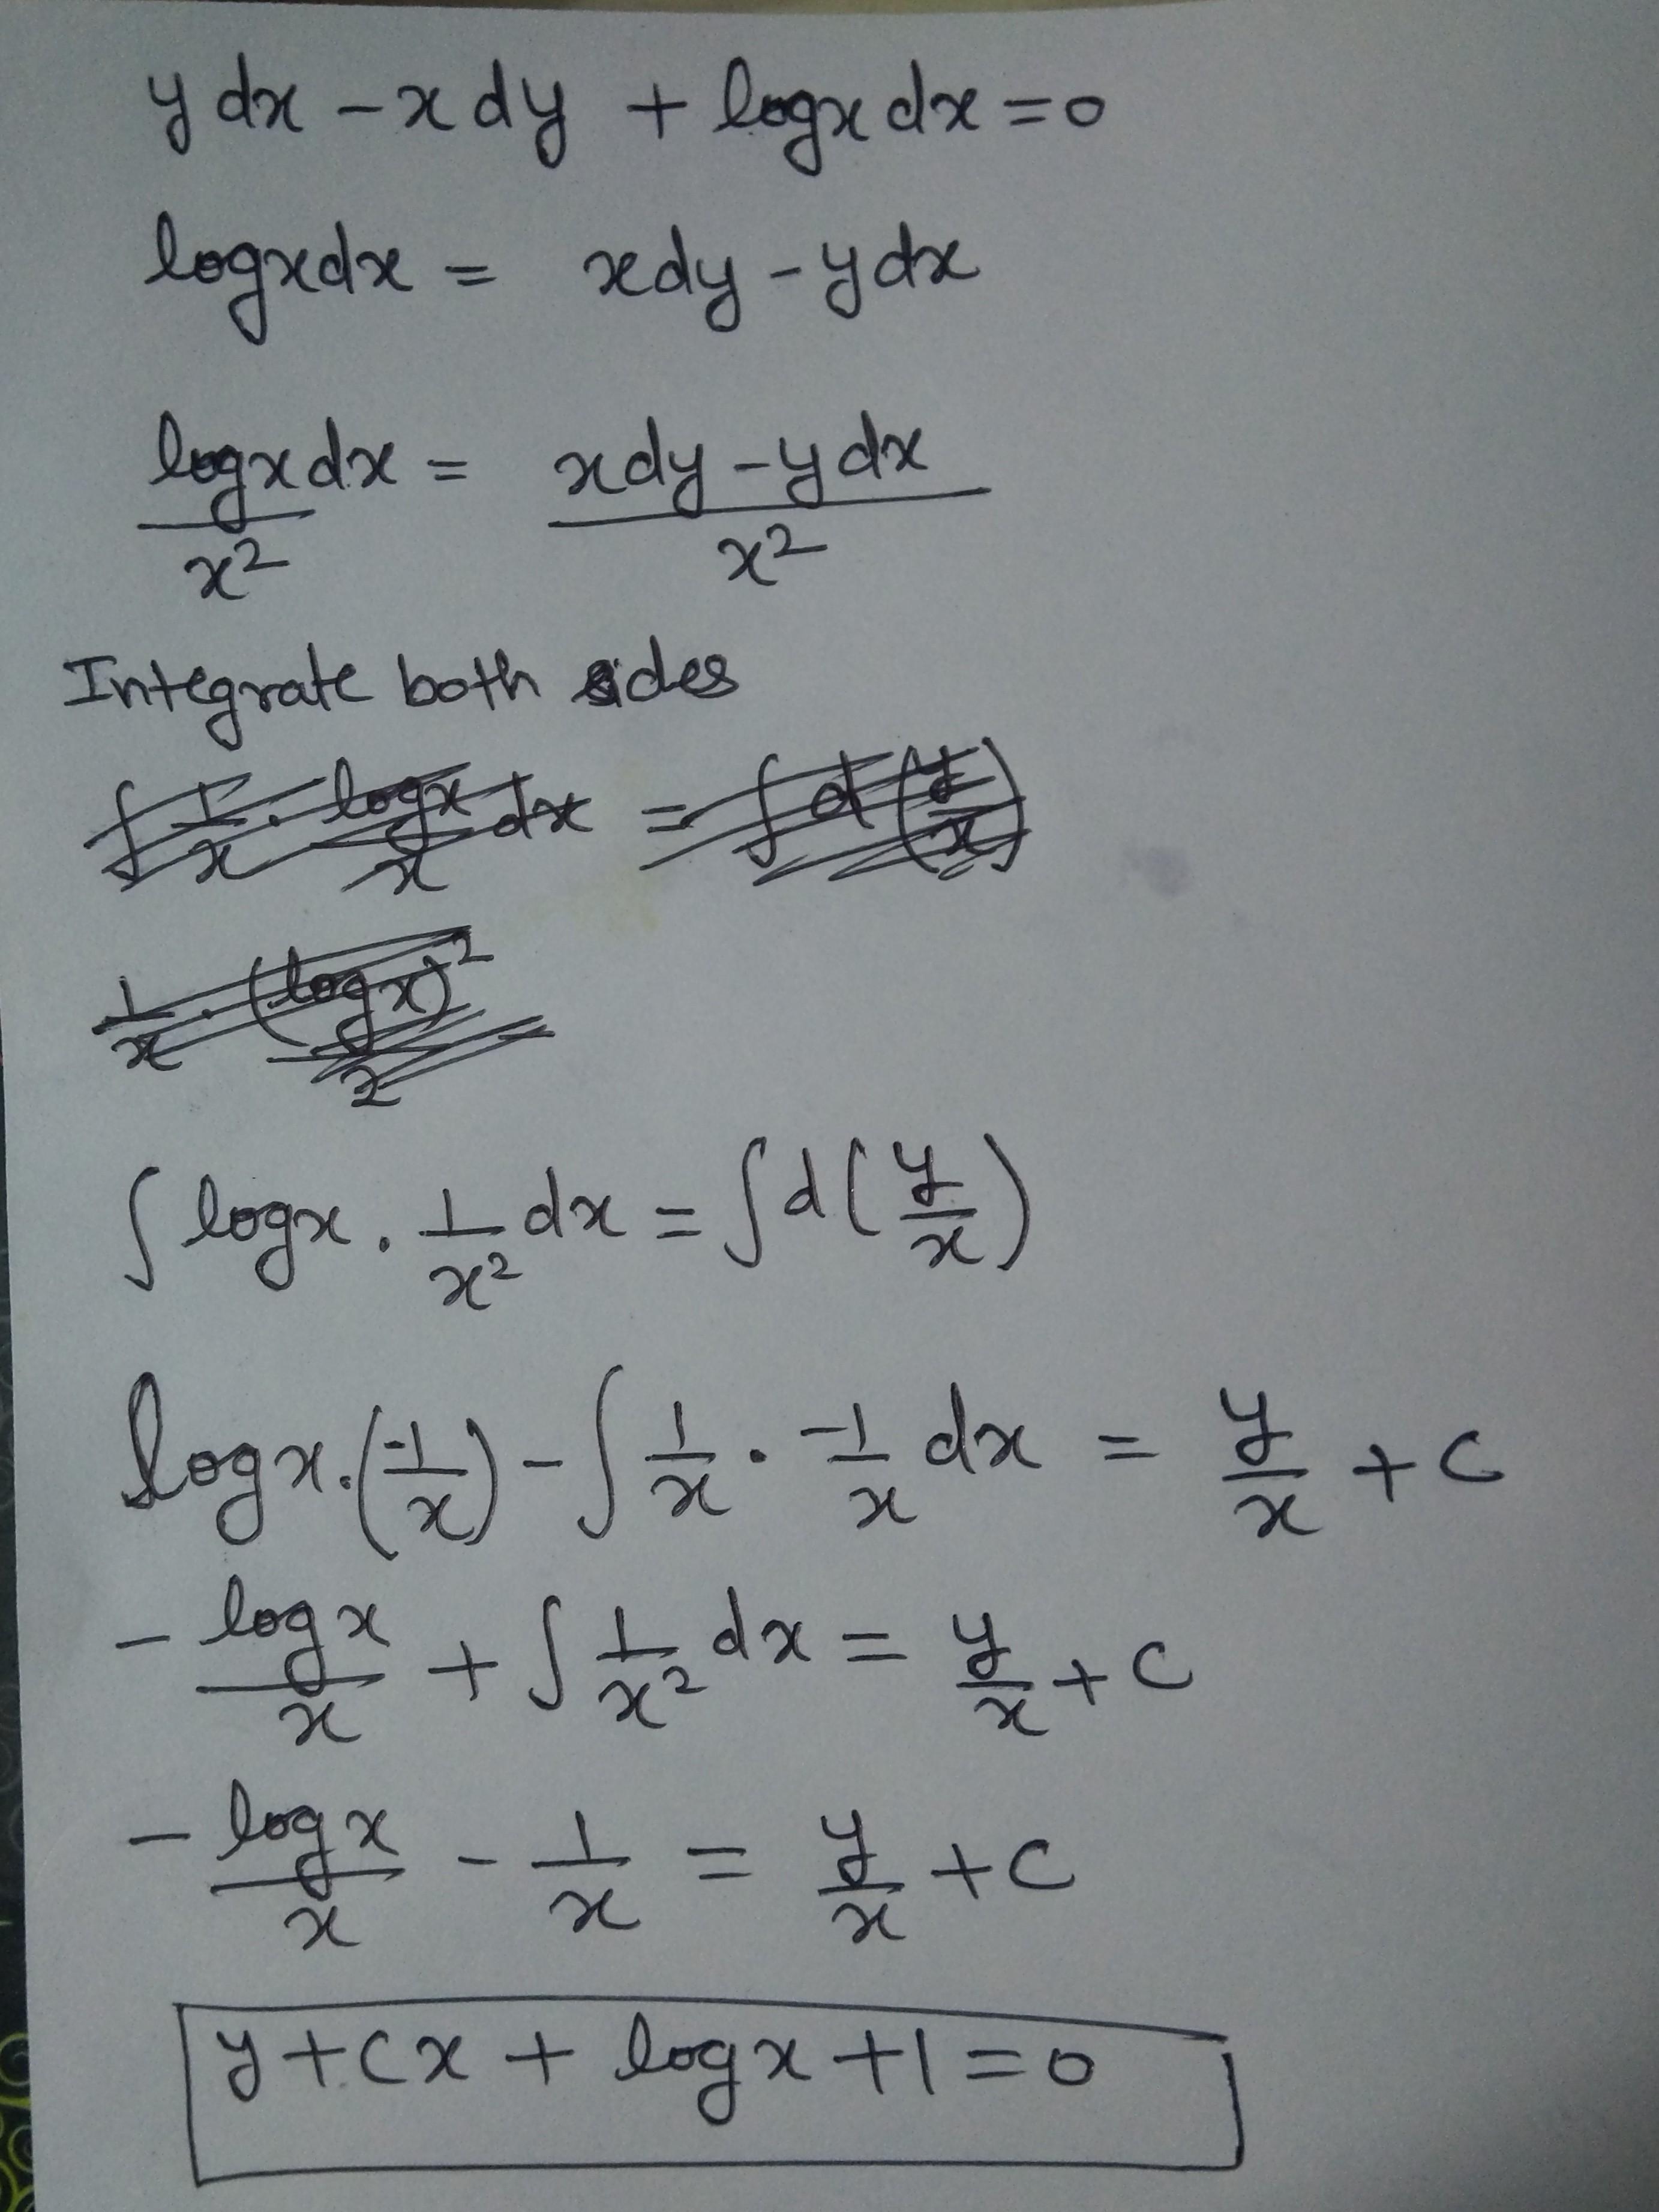 y dx - x dy + log x dx = 0
log x dx = x dy - y dx
log x / x² dx = (x dy - y dx) / x²
Integrate both sides
∫ 1/x · log x / x dx = ∫ d(y/x)
1/x · (log x)² / 2
∫ log x · 1/x² dx = ∫ d(y/x)
log x · (-1/x) - ∫ 1/x · -1/x dx = y/x + c
- log x / x + ∫ 1/x² dx = y/x + c
- log x / x - 1/x = y/x + c
y + cx + log x + 1 = 0